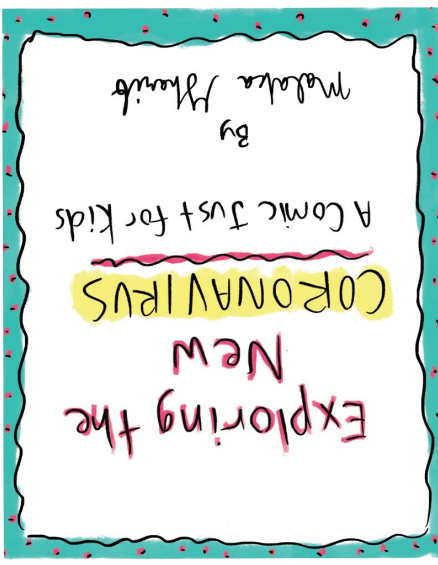 Exploring the
New
CORONAVIRUS
A Comic Just for Kids
By
Malaka Gharib